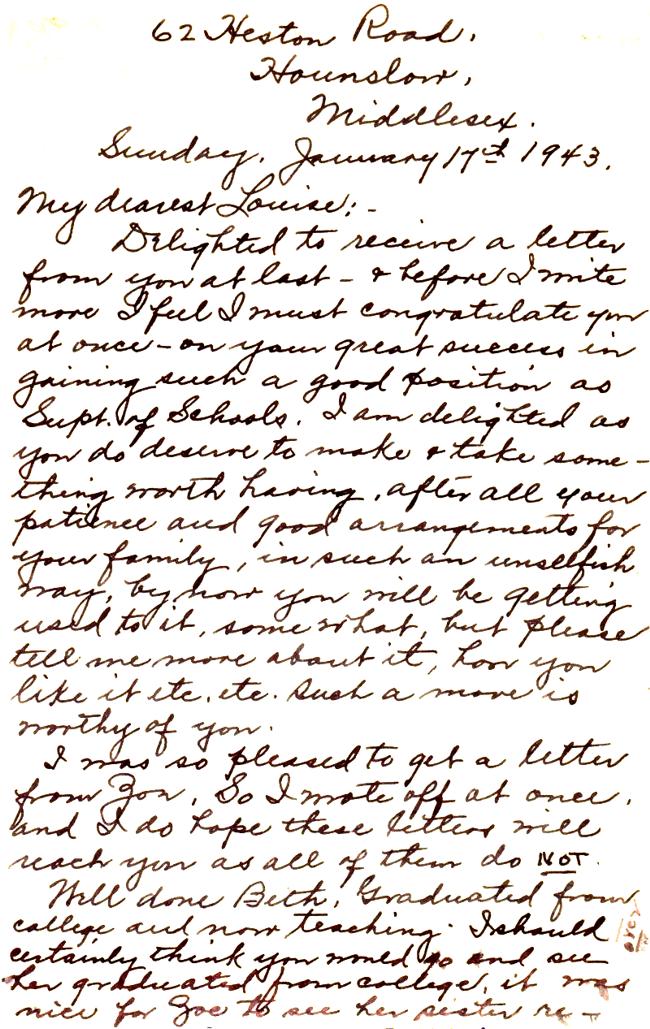 62 Heston Road.
Hounslow,
Middlesex.
Sunday. January 17th 1943.
My dearest Louise:-
Delighted to receive a letter
from you at last - & before I write
more I feel I must congratulate you
at once - on your great success in
gaining such a good position as
Supt. of Schools. I am delighted as
you do deserve to make & take some-
thing worth having, after all your
patience and good arrangements for
your family, in such an unselfish
way, by now you will be getting
used to it, some what, but please
tell me more about it, how you
like it etc. etc. Such a move is
worthy of you.
I was so pleased to get a letter
from Zoe, So I wrote off at once,
and I do hope these letters will
reach you as all of them do NOT.
Well done Beth, Graduated from
college and now teaching. I should
certainly think you would go and see
her graduated from college, it was
nice for Zoe to see her sister re-
over